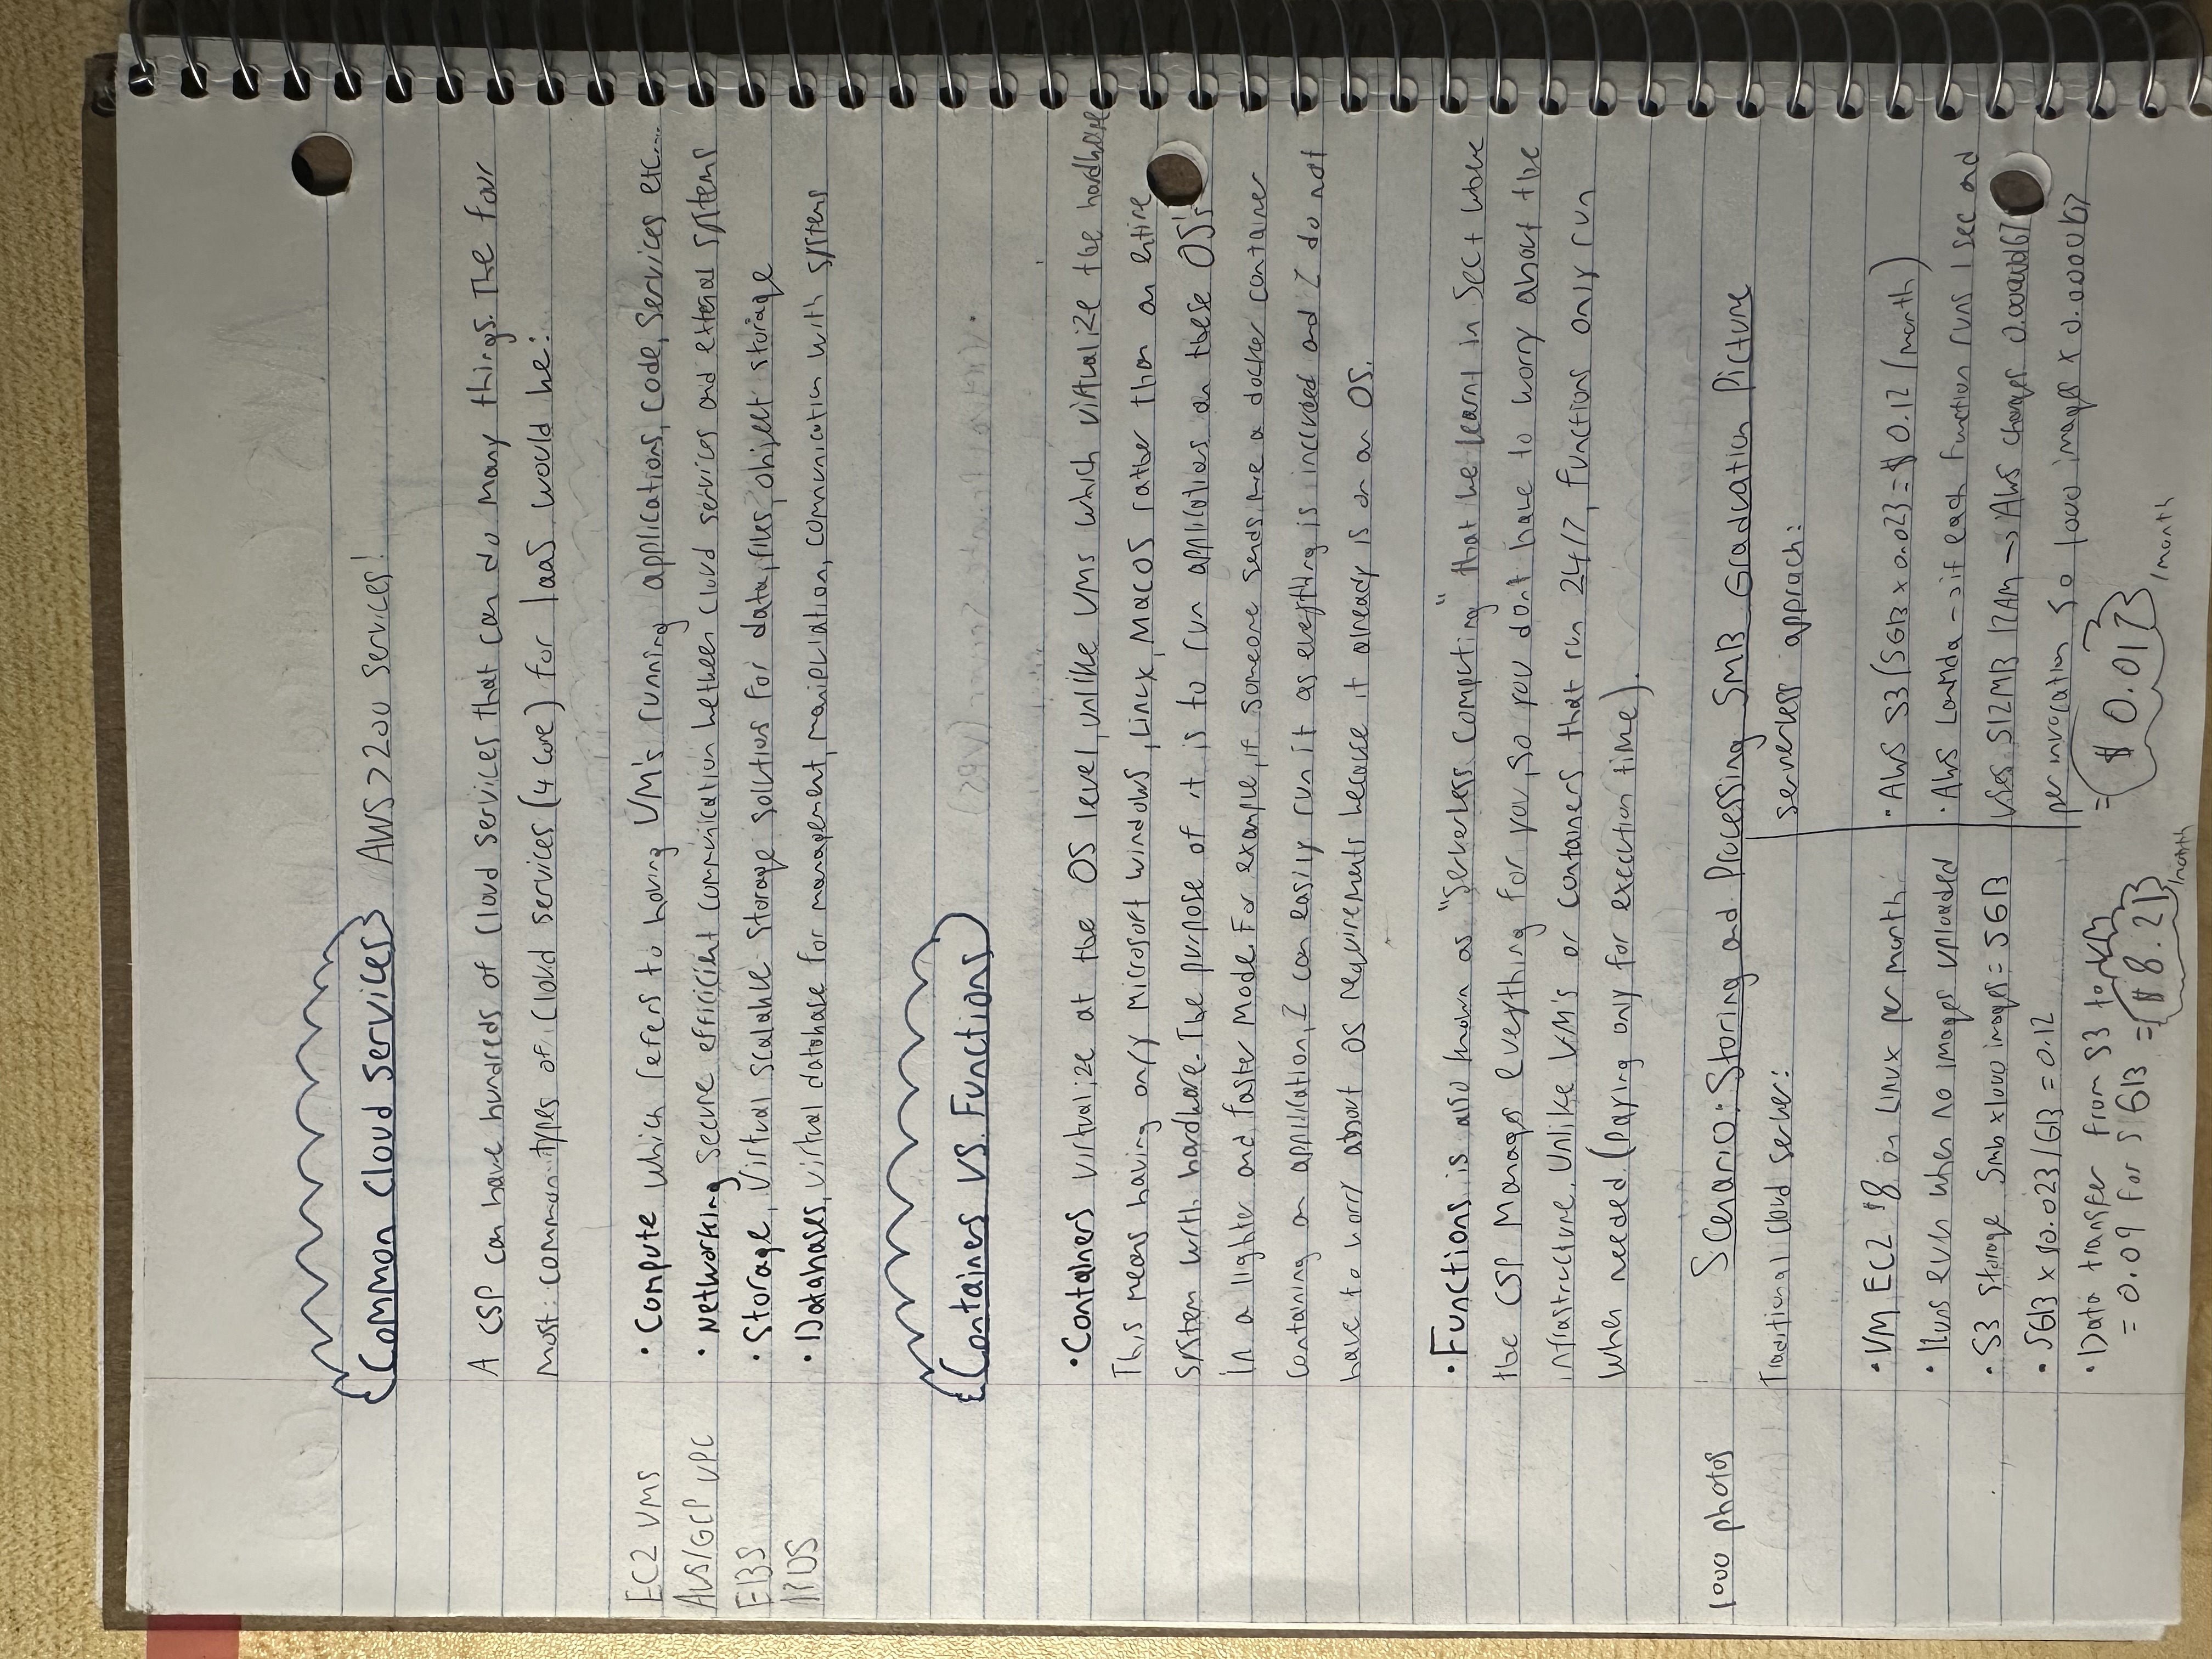 Common Cloud Services AWS > 200 services!
A CSP can have hundreds of cloud services that can do many things. The four
most common types of cloud services (4 core) for IaaS would be:
EC2 VMs • Compute which refers to having VM's running applications, code, services etc....
AWS/GCP VPC • Networking secure efficicient communication between cloud services and external systems
EBS • Storage, virtual scalable storage solutions for data, files, object storage
RDS • Databases, virtual database for management, manipulation, communication with systems
Containers VS. Functions
• Containers virtualize at the OS level, unlike VMs which virtualize the hardware
This means having only Microsoft Windows, Linux, MacOS rather than an entire
system with hardware. The purpose of it is to run applications on these OS's
in a lighter and faster mode. For example, if someone sends me a docker container
containing an application, I can easily run it as everything is included and I do not
have to worry about OS requirements because it already is on an OS.
• Functions is also known as "Serverless Computing" that we learnt in Sec 1 where
the CSP manages everything for you, so you don't have to worry about the
infrastructure. Unlike VM's or containers that run 24/7, functions only run
when needed. (paying only for execution time).
1000 photos Scenario: Storing and Processing 5MB Graduation Picture
Traditional cloud server:
• VM EC2 $8 on Linux per month
• Runs even when no images uploaded
• S3 storage 5mb x 1000 images = 5GB
• 5GB x $0.023/GB = 0.12
• Data transfer from S3 to VM
= 0.09 for 5GB = $8.21/month
serverless apprach:
• AWS S3 (5GB x 0.023 = $0.12/month)
• AWS Lambda -> if each function runs 1 sec and
uses 512MB RAM -> AWS charges
per invocation so 1000 images x
= $0.017/month